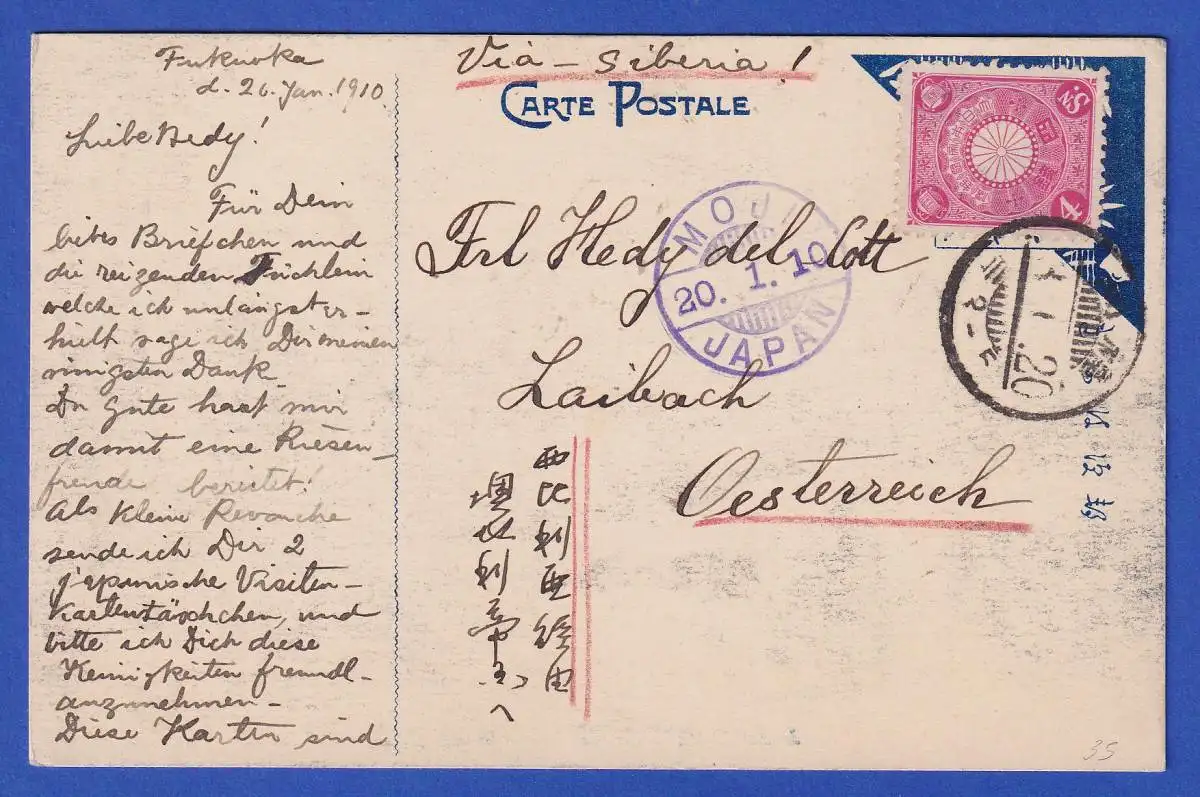 Fukuoka
d. 20. Jan. 1910.
Liebe Hedy!
Für Dein
liebes Briefchen und
die reizenden Tüchlein
welche ich unlängst er-
hielt sage ich Dir meinen
innigsten Dank.
Du gute hast mir
damit eine Riesen-
freude bereitet.
Als kleine Revanche
sende ich Dir 2
japanische Visiten-
kartentäschchen, und
bitte ich Dich diese
Kleinigkeiten freundl.
anzunehmen -
Diese Karten sind
Via - Siberia!
CARTE POSTALE
Frl Hedy del Cott
Laibach
Oesterreich
西比利亜経由
墺地利帝国へ
MOJI
20. 1. 10
JAPAN
4 SN.
35